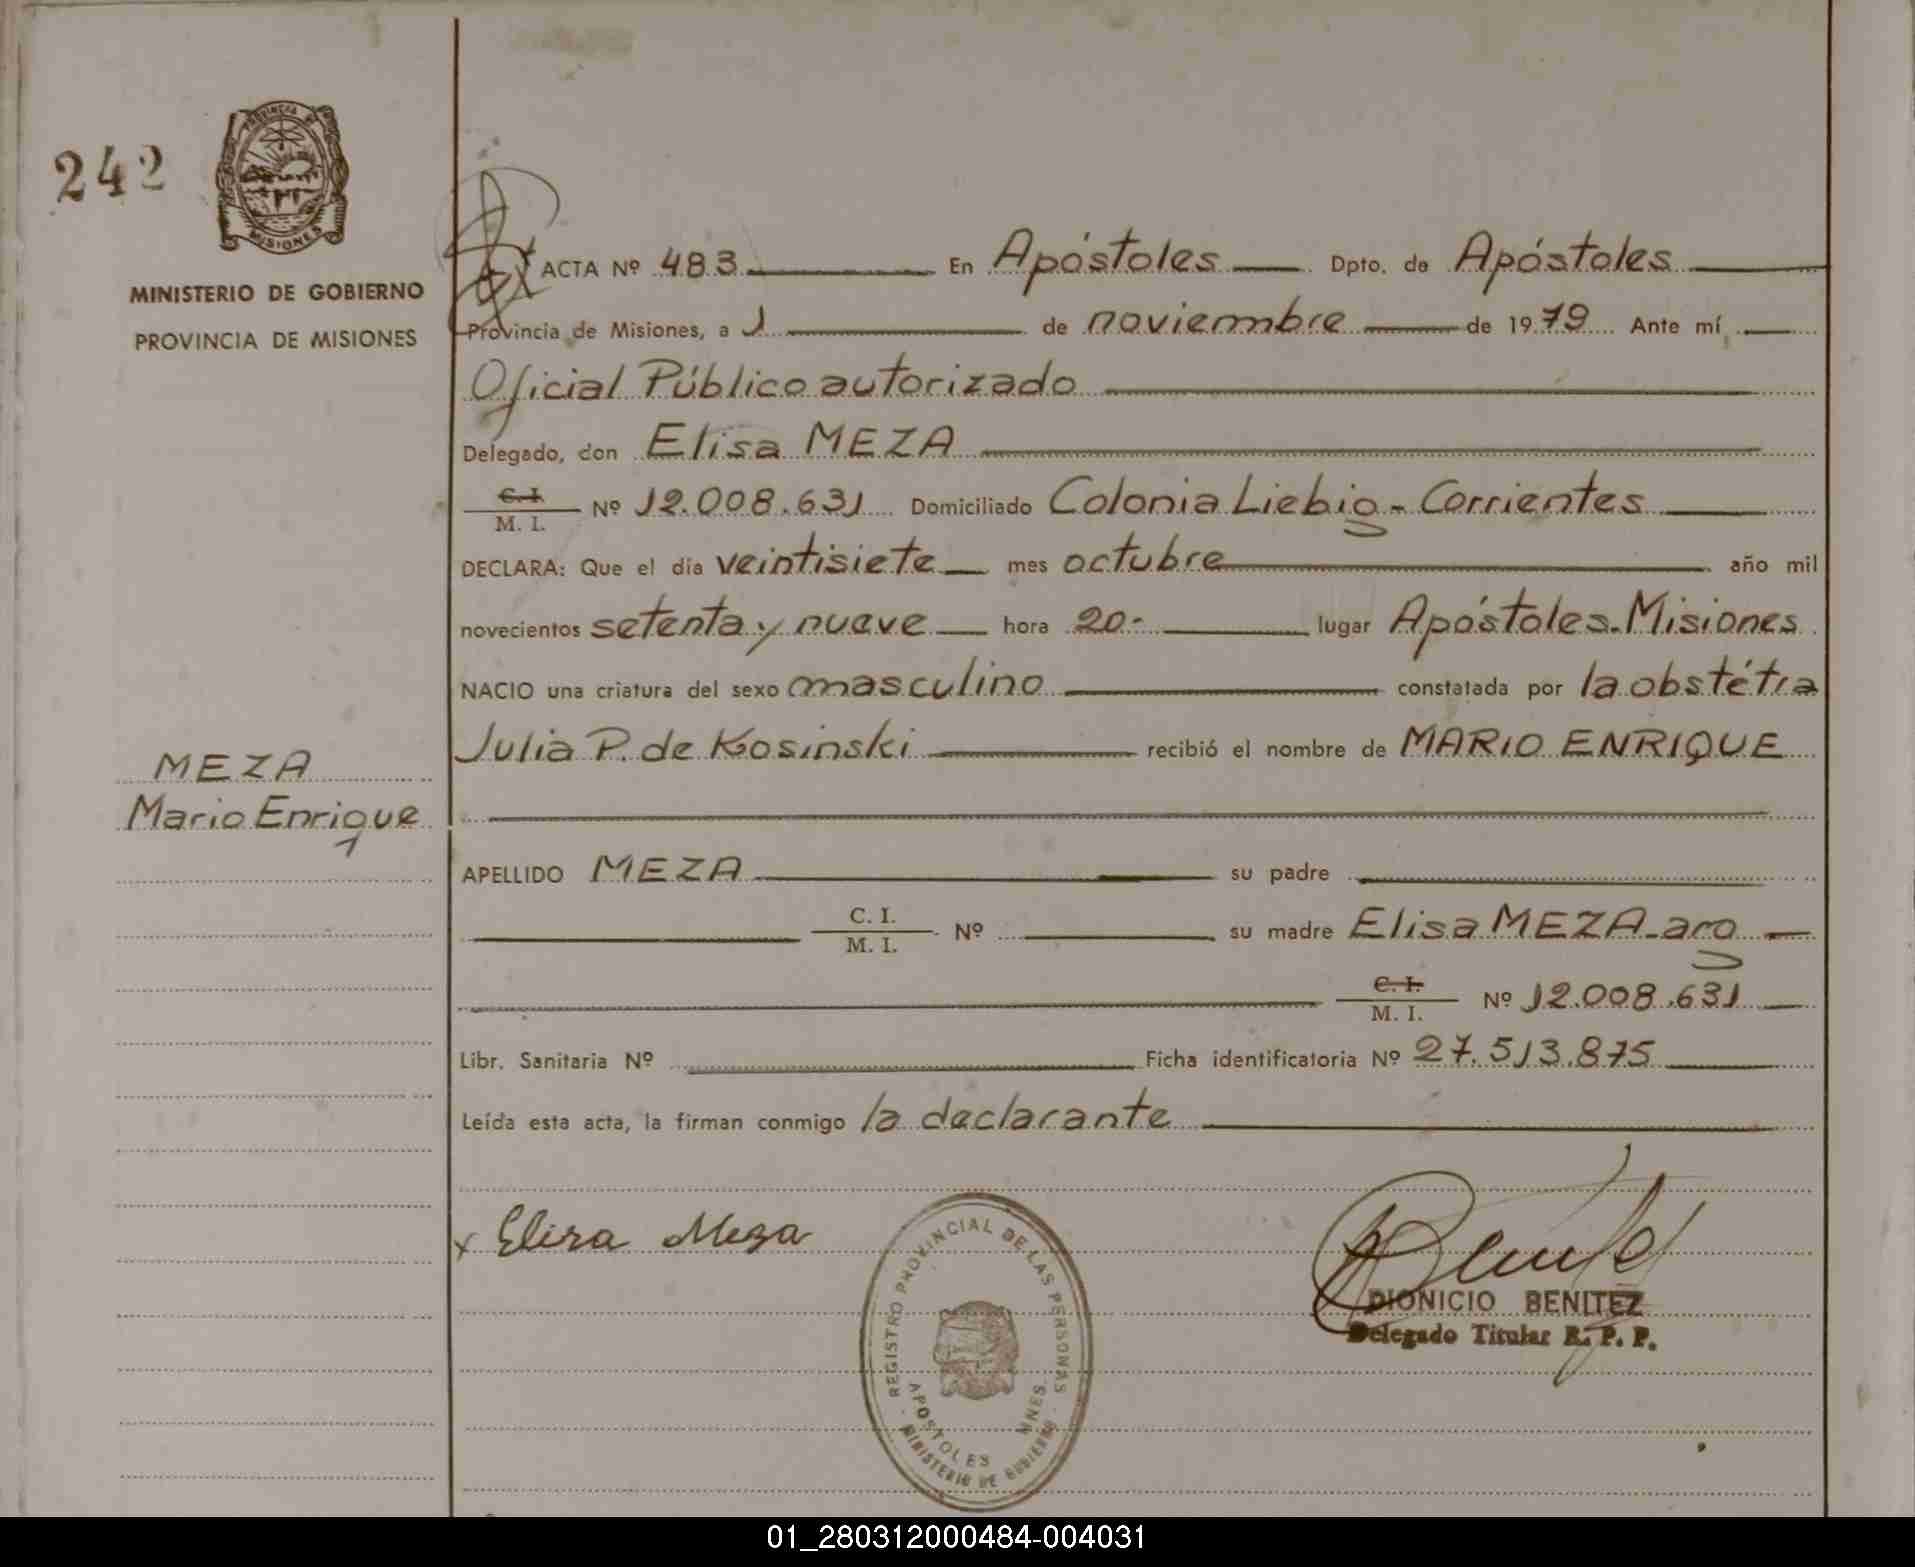 242
PROVINCIA DE
MISIONES
MINISTERIO DE GOBIERNO
PROVINCIA DE MISIONES
MEZA
Mario Enrique
ACTA Nº 483 En Apóstoles Dpto. de Apóstoles
Provincia de Misiones, a 1 de noviembre de 1979 Ante mí
Oficial Público autorizado
Delegado, don Elisa MEZA
C. I.
M. I. Nº 12.008.631 Domiciliado Colonia Liebig - Corrientes
DECLARA: Que el día veintisiete mes octubre año mil
novecientos setenta y nueve hora 20- lugar Apóstoles-Misiones
NACIO una criatura del sexo masculino constatada por la obstétra
Julia P. de Kosinski recibió el nombre de MARIO ENRIQUE
APELLIDO MEZA su padre
C. I.
M. I. Nº su madre Elisa MEZA-arg
C. I.
M. I. Nº 12.008.631
Libr. Sanitaria Nº Ficha identificatoria Nº 27.513.875
Leída esta acta, la firman conmigo la declarante
x Elisa Meza
REGISTRO PROVINCIAL DE LAS PERSONAS
APOSTOLES MNES.
MINISTERIO DE GOBIERNO
DIONICIO BENITEZ
Delegado Titular R. P. P.
01_280312000484-004031